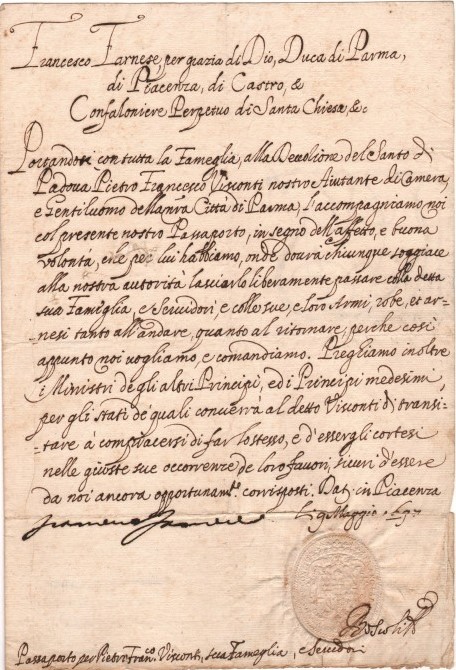 Francesco Farnese, per grazia di Dio, Duca di Parma,
di Piacenza, di Castro, &
Confaloniere Perpetuo di Santa Chiesa, &c.
Portandosi con tutta la Fameglia, alla Devozione del Santo di
Padova Pietro Francesco Visconti nostro Aiutante di Camera,
e Gentiluomo della nra Città di Parma, l'accompagniamo noi
col presente nostro Passaporto, in segno dell'affetto, e buona
volontà, che per lui habbiamo, onde dovrà chiunque soggiace
alla nostra autorità lasciarlo liberamente passare colla detta
sua Fameglia, e Servidori, e colle sue, e loro Armi, robe, et ar-
nesi tanto all'andare, quanto al ritornare, perche così
appunto noi vogliamo, e comandiamo. Preghiamo inoltre
i Ministri degli altri Principi, ed i Principi medesimi,
per gli stati de' quali converrà al detto Visconti di transi-
tare à compiacersi di far lo stesso, e d'essergli cortesi
nelle giuste sue occorrenze de loro favori, sicuri d'essere
da noi ancora opportunamte. corrisposti. Dat. in Piacenza
li 9 Maggio
Francesco Farnese
Passaporto per Pietro Franco. Visconti, sua Fameglia, e Servidori